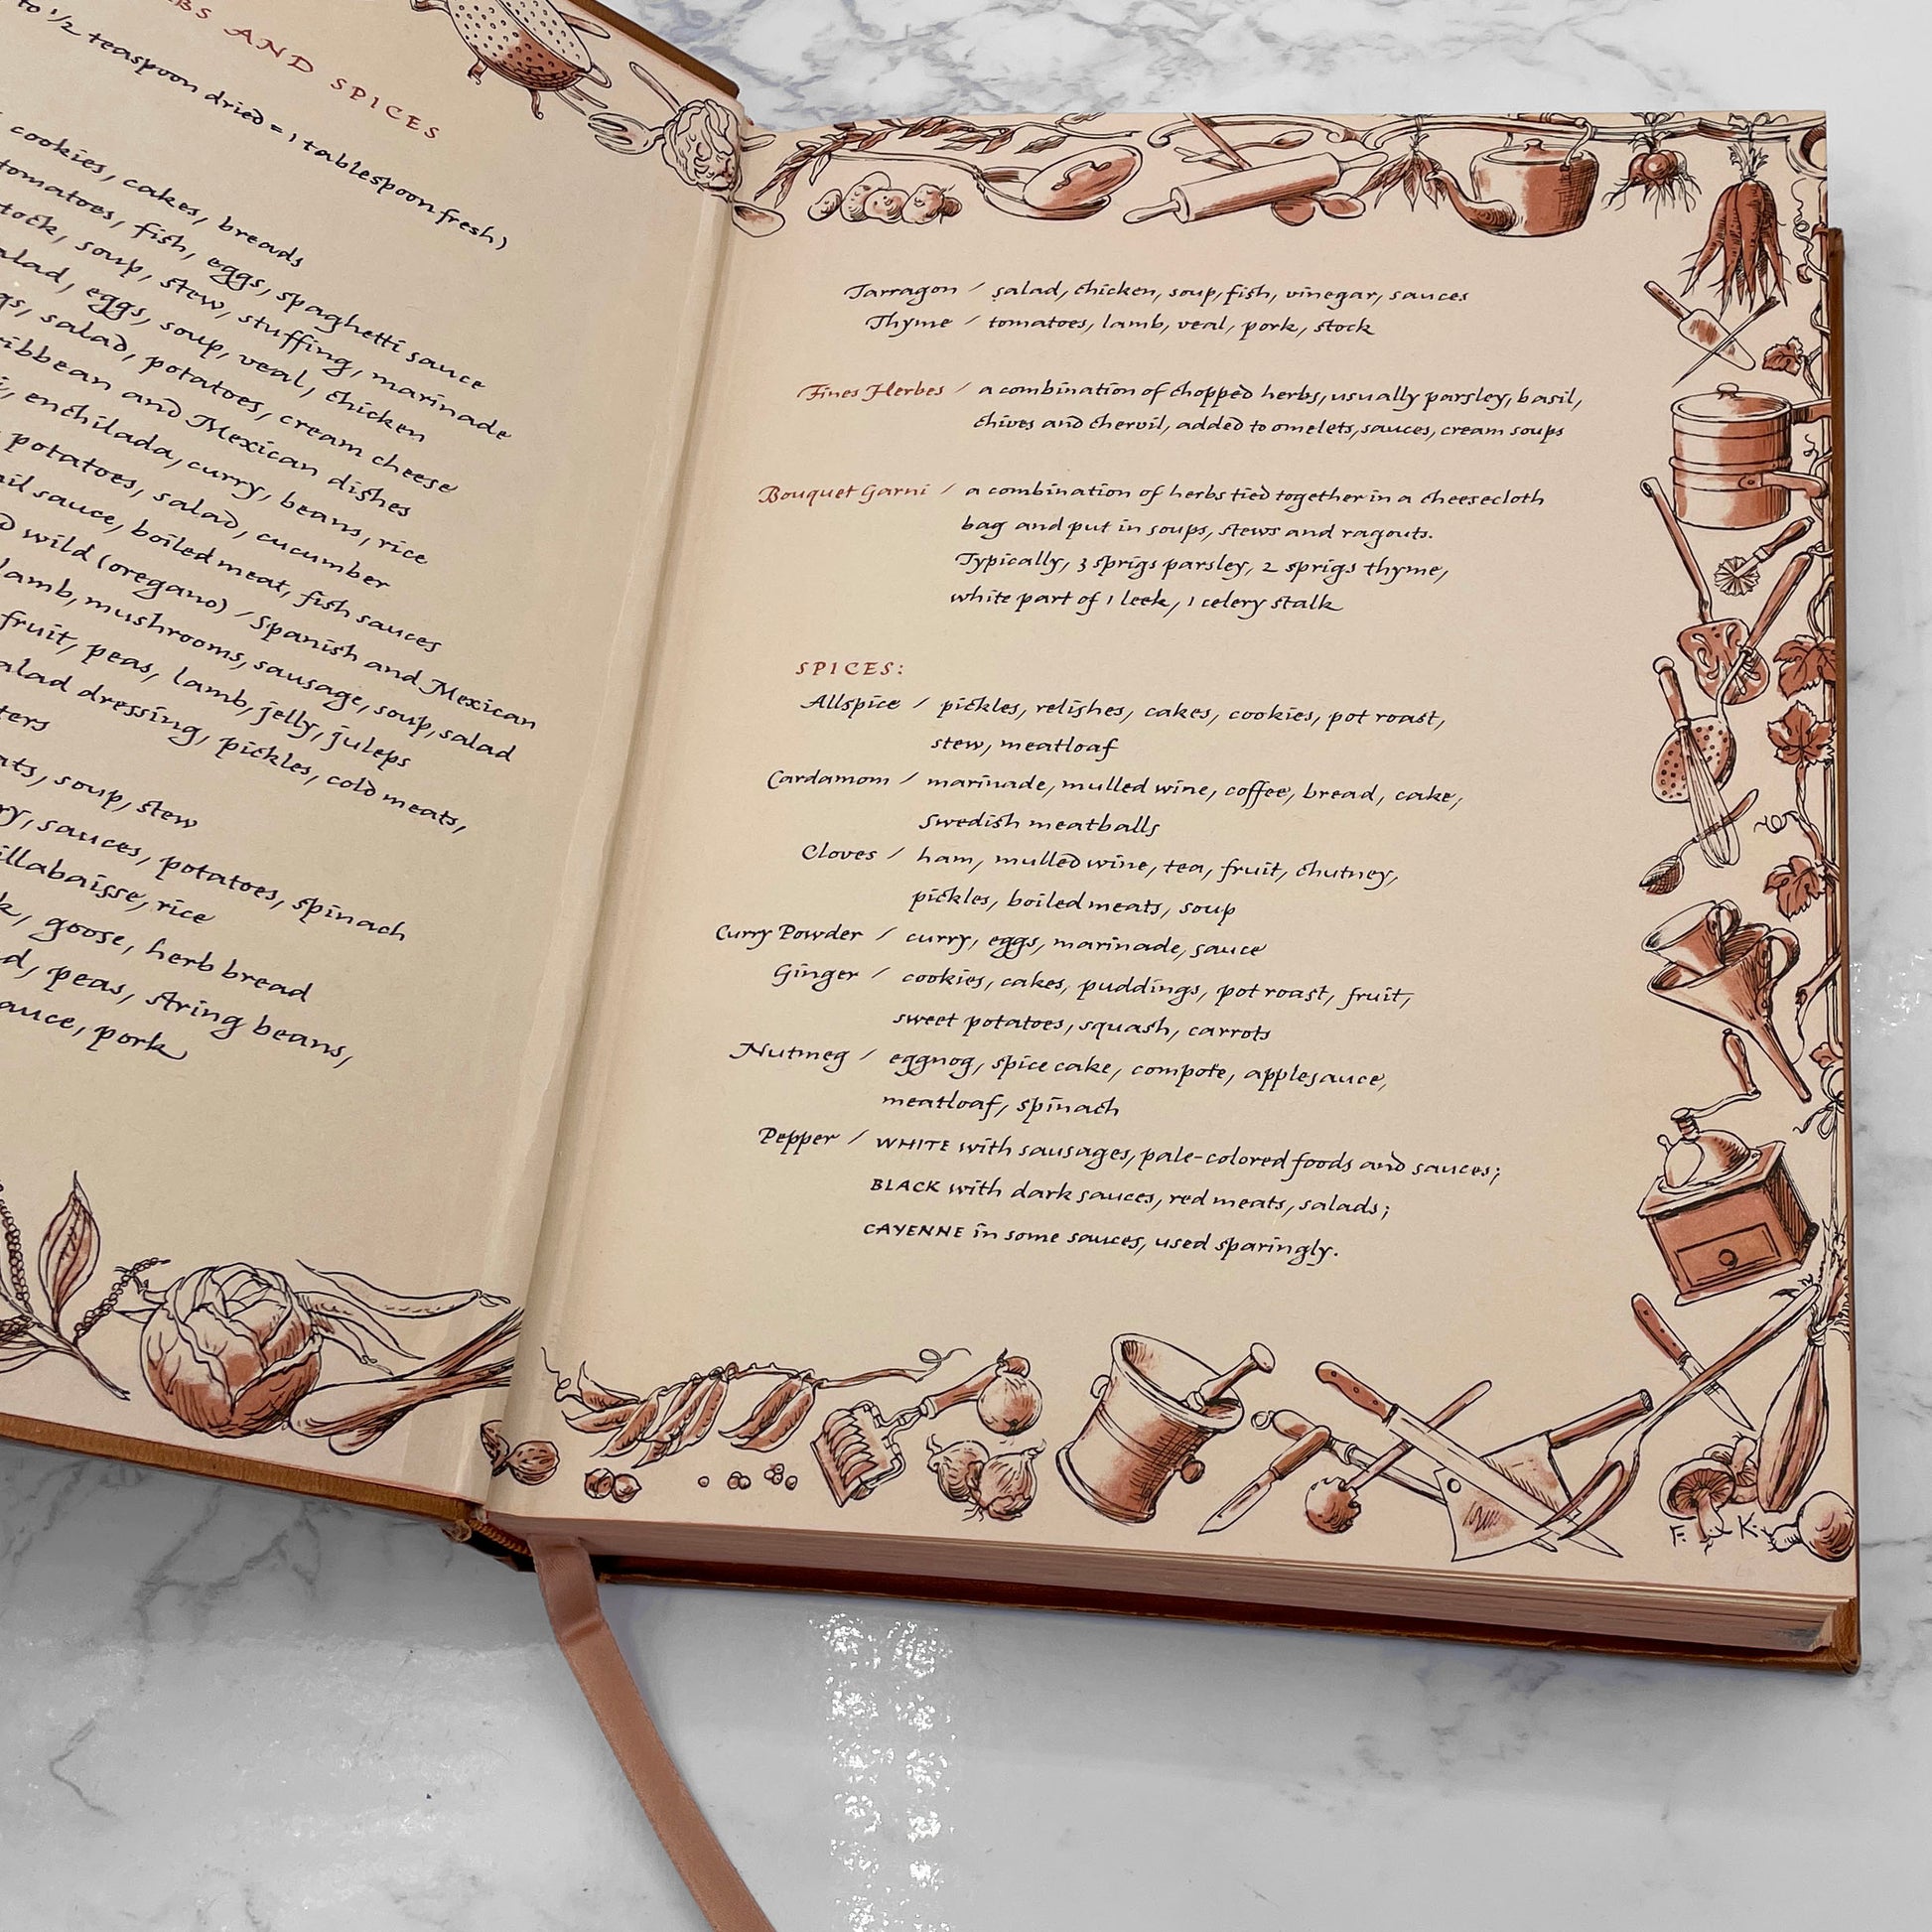 AND SPICES
to 1/2 teaspoon dried = 1 tablespoon fresh)
cookies, cakes, breads
tomatoes, fish, eggs, spaghetti sauce
stock, soup, stew, stuffing, marinade
salad, eggs, soup, veal, chicken
salad, potatoes, cream cheese
and Mexican dishes
enchilada, curry, beans, rice
potatoes, salad, cucumber
sauce, boiled meat, fish sauces
wild (oregano) / Spanish and Mexican
lamb, mushrooms, sausage, soup, salad
fruit, peas, lamb, jelly, juleps
salad dressing, pickles, cold meats,
soup, stew
sauces, potatoes, spinach
rice
goose, herb bread
peas, string beans,
pork
Tarragon / salad, chicken, soup, fish, vinegar, sauces
Thyme / tomatoes, lamb, veal, pork, stock
Fines Herbes / a combination of chopped herbs, usually parsley, basil,
chives and chervil, added to omelets, sauces, cream soups
Bouquet Garni / a combination of herbs tied together in a cheesecloth
bag and put in soups, stews and ragouts.
Typically, 3 sprigs parsley, 2 sprigs thyme,
white part of 1 leek, 1 celery stalk
SPICES:
Allspice / pickles, relishes, cakes, cookies, pot roast,
stew, meatloaf
Cardamom / marinade, mulled wine, coffee, bread, cake,
Swedish meatballs
Cloves / ham, mulled wine, tea, fruit, chutney,
pickles, boiled meats, soup
Curry Powder / curry, eggs, marinade, sauce
Ginger / cookies, cakes, puddings, pot roast, fruit,
sweet potatoes, squash, carrots
Nutmeg / eggnog, spice cake, compote, applesauce,
meatloaf, spinach
Pepper / WHITE with sausages, pale-colored foods and sauces;
BLACK with dark sauces, red meats, salads;
CAYENNE in some sauces, used sparingly.
F. K.